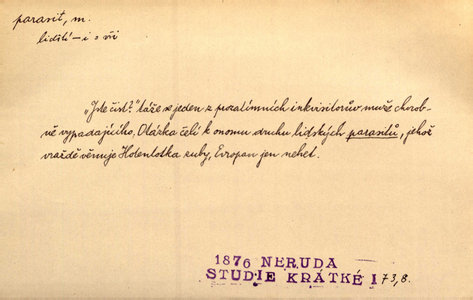 parasit, m.
lidští – i = vši
„Jste čist?" táže se jeden z pozatímních inkvisitorův muže chorob-
ně vypadajícího. Otázka čelí k onomu druhu lidských parasitů, jehož
vraždě věnuje Hotentotka zuby, Evropan jen nehet.
1876 NERUDA
STUDIE KRÁTKÉ I 73,8.